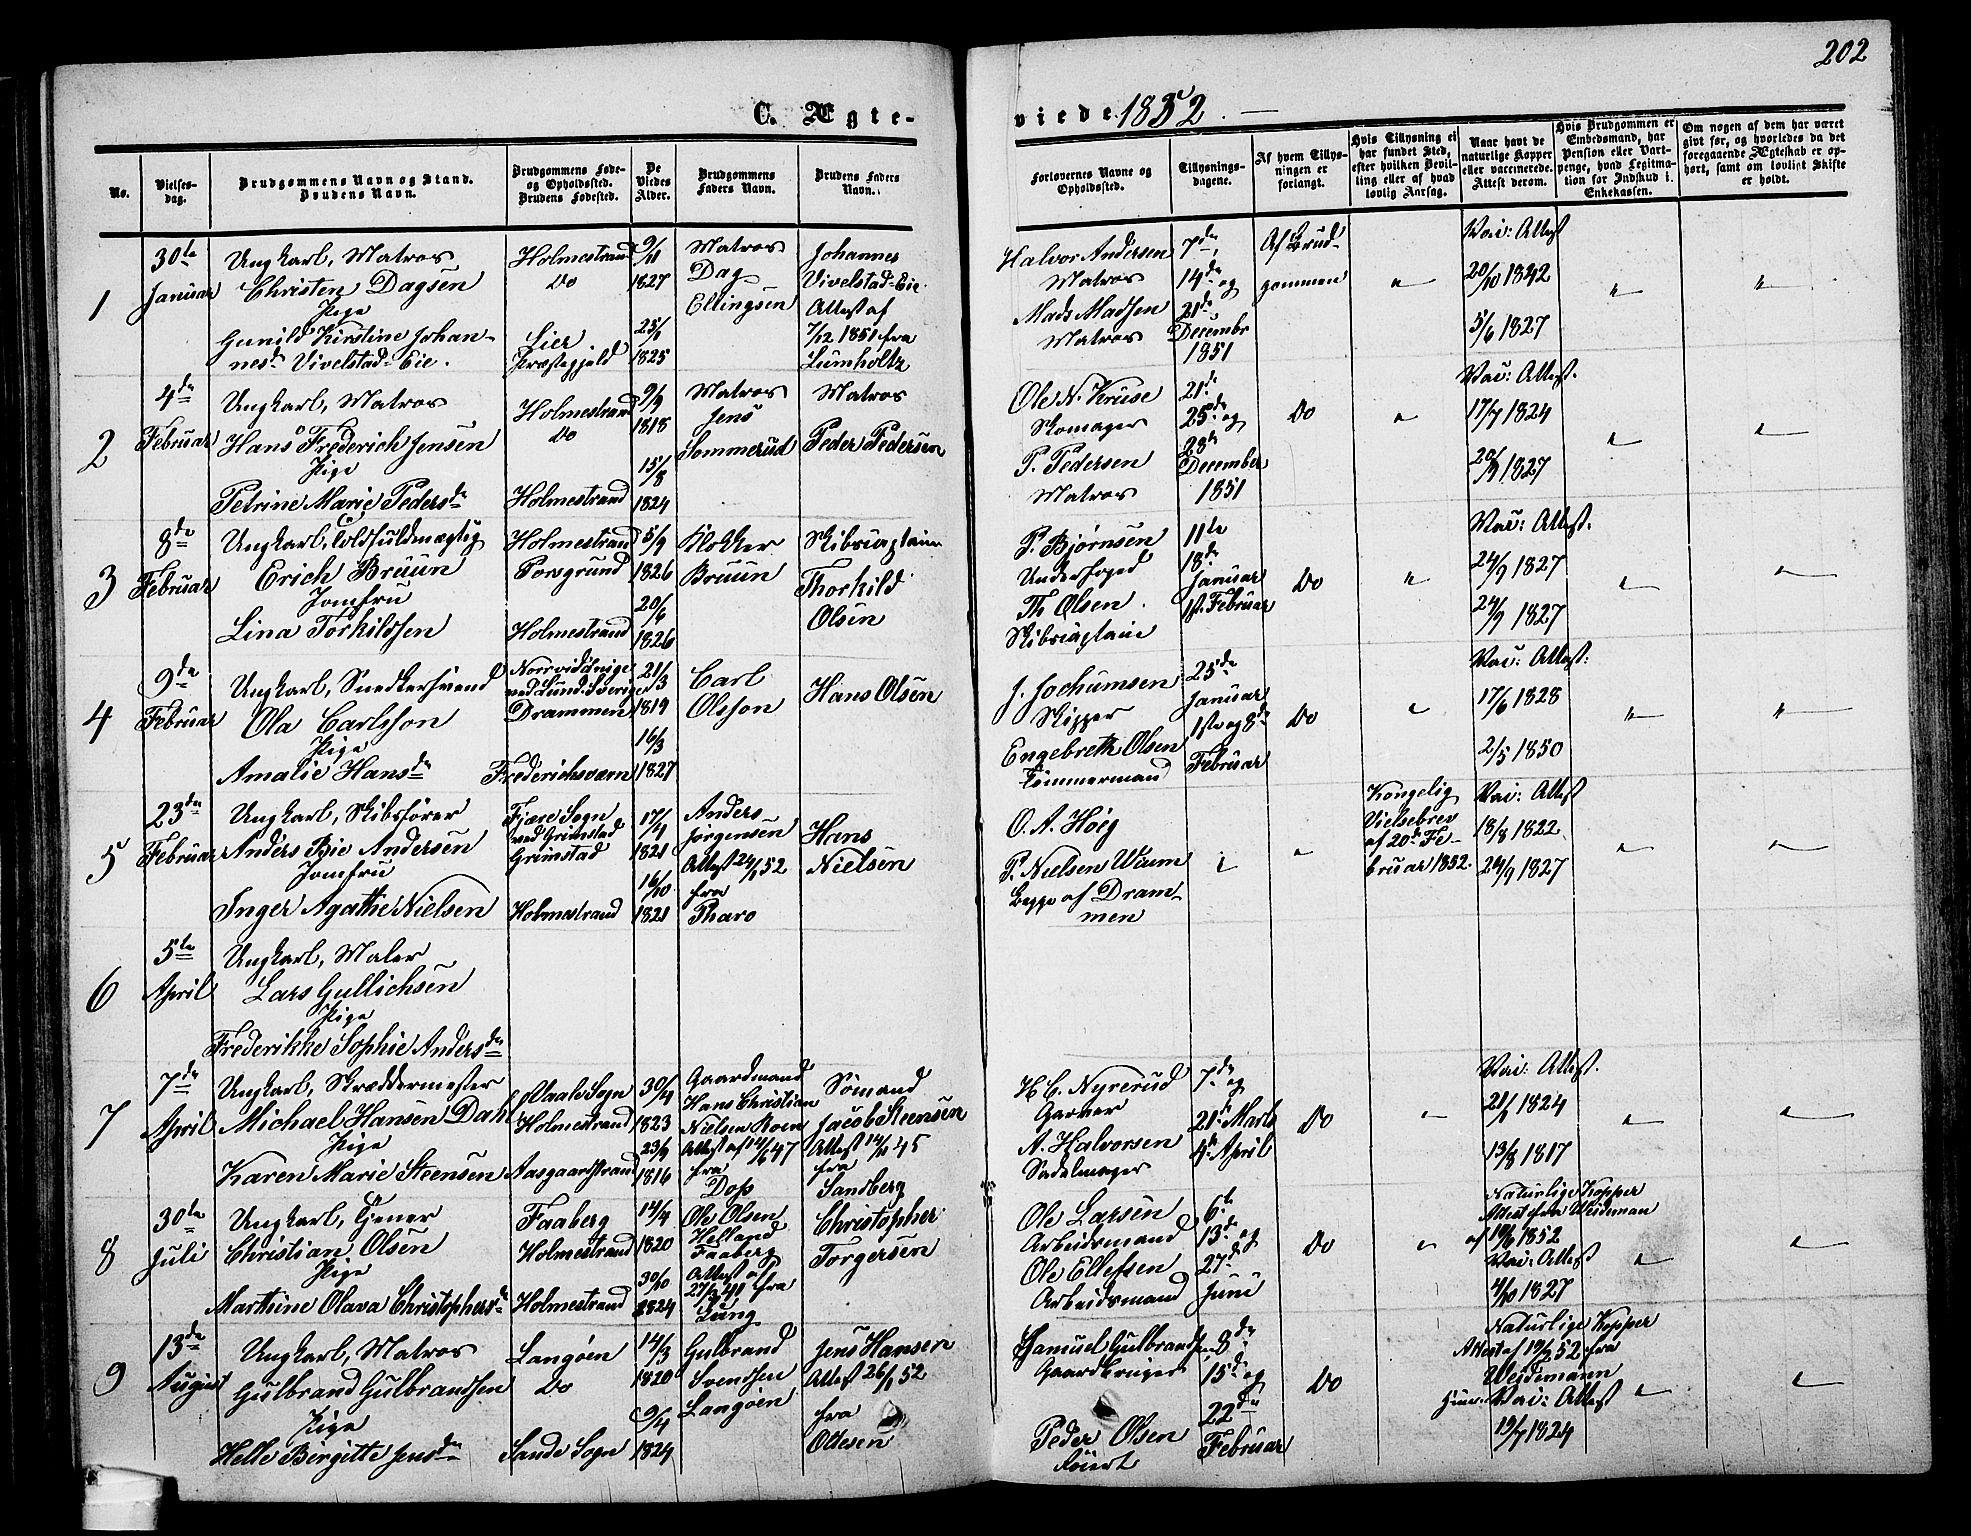 202
C. Ægte-
viede 1852.
No.
Vielses-
dag.
Brudgommens Navn og Stand.
Brudens Navn.
Brudgommens Føde-
og Opholdssted.
Brudens Fødested.
De
Viedes
Alder.
Brudgommens
Faders Navn.
Brudens Faders
Navn.
Forlovernes Navne og
Opholdssted.
Tillysnings-
dagene.
Af hvem Tillys-
ningen er
forlangt.
Hvis Tillysning ei
har fundet Sted,
efter hvilken Bevil-
ling eller af hvad
lovlig Aarsag.
Naar havt de
naturlige Kopper
eller vaccinerede.
Attest derom.
Hvis Brudgommen er
Embedsmand, har
Pension eller Vart-
penge, hvad Legitima-
tion for Indskud i
Enkekassen.
Om nogen af dem har været
givt før, og hvorledes da det
foregaaende Ægteskab er op-
hørt, samt om lovligt Skifte
er holdt.
1
30te
Januar
Ungkarl, Matros
Christen Dagsen
Pige
Gunild Kirstine Johan-
nesd. Vivelstad-Eie.
Holmestrand
Do
Lier
Præstegjeld
9/11
1827
25/1
1825
Matros
Dag
Ellingsen
Johannes
Vivelstad-Eie.
Attest af
7/12 1851 fra
Lumholtz
Halvor Andersen
Matros
Mads Madsen
Matros
7de,
14de og
21de
Decembr
1851
Af Brud-
gommen
"
Vac: Attest
20/10 1842
5/6 1827
"
"
2
4de
Februar
Ungkarl, Matros
Hans Frederich Jensen
Pige
Petrine Marie Pedersdr
Holmestrand
Do
Holmestrand
9/9
1818
15/8
1824
Matros
Jens
Sommerud
Matros
Peder Pedersen
Ole N. Kruse
Skomager
P. Pedersen
Matros
21de
25de og
28de
December
1851
Do
"
Vac: Attest.
17/7 1824
20/9 1827
"
"
3
8de
Februar
Ungkarl, Toldfuldmægtig
Erich Bruun
Jomfru
Lina Torkildsen
Holmestrand
Porsgrund
Holmestrand
5/9
1826
20/6
1826
Klokker
Bruun
Skibscaptain
Thorkild
Olsen
P. Bjørnsen
Underfoged
Th Olsen.
Skibscaptain
11te
18de
Januar
1ste Februar
Do
"
Vac: Attest.
24/9 1827
24/9 1827
"
"
4
9de
Februar
Ungkarl, Snedkersvend
Ola Carlsson
Pige
Amalie Hansdr
Norrvidinge
ved Lund i Sverige
Drammen
Frederichsværn
21/3
1819
16/3
1827
Carl
Olsson
Hans Olsen
J. Jochumsen
Skipper
Engebreth Olsen
Tømmermand
25de
Januar
1ste og 8de
Februar
Do
"
Vac: Attest:
17/6 1828
2/5 1850
"
"
5
23de
Februar
Ungkarl, Skibsfører
Anders Bie Andersen
Jomfru
Inger Agathe Nielsen
Fjære Sogn
ved Grimstad
Grimstad
Holmestrand
17/4
1821
16/10
1821
Anders
Jørgensen
Attest 24/1 52
fra
Tharo
Hans
Nielsen
O. A. Höeg
P. Nielsen Waum
begge af Dram-
men
"
"
Kongelig
Vielsebrev
af 20de Fe-
bruar 1852.
Vac: Attest
18/8 1822
24/9 1827
"
"
6
5te
April
Ungkarl, Maler
Lars Gullichsen
Pige
Frederikke Sophie Andersdr
7
7de
April
Ungkarl, Skræddermester
Michael Hansen Dahl
Pige
Karen Marie Steensen
Vaale Sogn
Holmestrand
Aasgaardstrand
30/4
1823
23/9
1816
Gaardmand
Hans Christian
Nielsen Roen
Attest af 14/6 47
fra
Dop
Sømand
Jacob Steensen
Attest 14/10 45
fra
Sandberg
H. C. Nyrerud
Garver
A. Halvorsen
Sadelmager
7de og
21de Marts
4de April
Do
"
Vac: Attest.
21/1 1824
13/8 1817
"
"
8
30te
Juli
Ungkarl, Tjener
Christian Olsen
Pige
Marthine Olava Christophersdr
Faaberg
Holmestrand
Holmestrand
14/4
1820
30/10
1824
Ole Olsen
Helland
Faaberg
Attest af
27/3 41 fra
Lung
Christopher
Torgersen
Ole Larsen
Arbeidsmand
Ole Ellefsen
Arbeidsmand
6te
13de og
27de
Juni
Do
"
Naturlige Kopper
Attest fra Weideman
af 19/6 1852
Vac: Attest
4/10 1827
"
"
9
13de
August
Ungkarl, Matros
Gulbrand Gulbrandsen
Pige
Helle Birgitte Jensdr
Langøen
Do
Sande Sogn
14/3
1820
9/4
1824
Gulbrand
Svendsen
Langøen
Jens Hansen
Attest 26/1 52
fra
Ottesen
Samuel Gulbrandsen
Gaardbruger
Peder Olsen
8de
15de og
22de
Februar
Do
Naturlige Kopper
Attest af 19/2 52 fra
Weidemann
Vac: Attest
19/7 1824
"
"